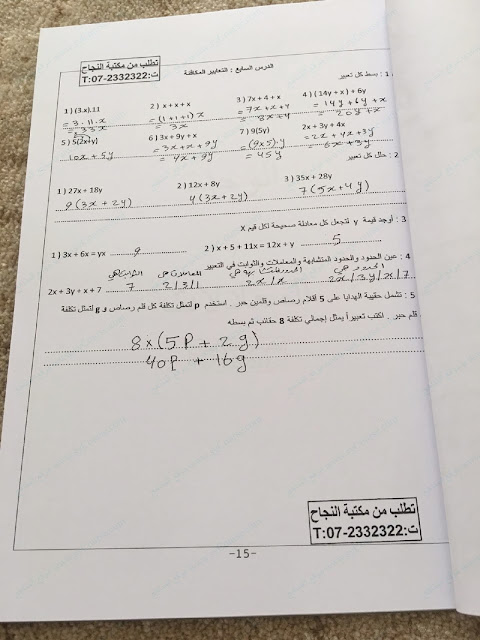 تطلب من مكتبة النجاح
ت:07-2332322:T
الدرس السابع : التعابير المتكافئة
1 : بسط كل تعبير
1 ) (3.x).11 2 ) x + x + x 3 ) 7x + 4 + x 4 ) (14y + x) + 6y
= 3 . 11 . x = (1+1+1) x = 7x + x + 4 = 14y + 6y + x
= 33x = 3x = 8x + 4 = 20y + x
5 ) 5(2x+y) 6 ) 3x + 9y + x 7 ) 9(5y) 2x + 3y + 4x
10x + 5y = 3x + x + 9y = (9x5).y = 2x + 4x + 3y
= 4x + 9y = 45y = 6x + 3y
2 : حلل كل تعبير
1 ) 27x + 18y 2 ) 12x + 8y 3 ) 35x + 28y
9(3x + 2y) 4(3x + 2y) 7(5x + 4y)
3 : أوجد قيمة y لتجعل كل معادلة صحيحة لكل قيم x
1 ) 3x + 6x = yx 9 2 ) x + 5 + 11x = 12x + y 5
4 : عين الحدود والحدود المتشابهة والمعاملات والثوابت في التعبير
2x + 3y + x + 7 7 2/3/1 2x/x 2x/3y/x/7
5 : تشمل حقيبة الهدايا على 5 أقلام رصاص وقلمين حبر . استخدم p لتمثل تكلفة كل قلم رصاص و g لتمثل تكلفة
قلم حبر . اكتب تعبيراً يمثل إجمالي تكلفة 8 حقائب ثم بسطه
8x(5p + 2g)
40p + 16g
تطلب من مكتبة النجاح
ت:07-2332322:T
-15-